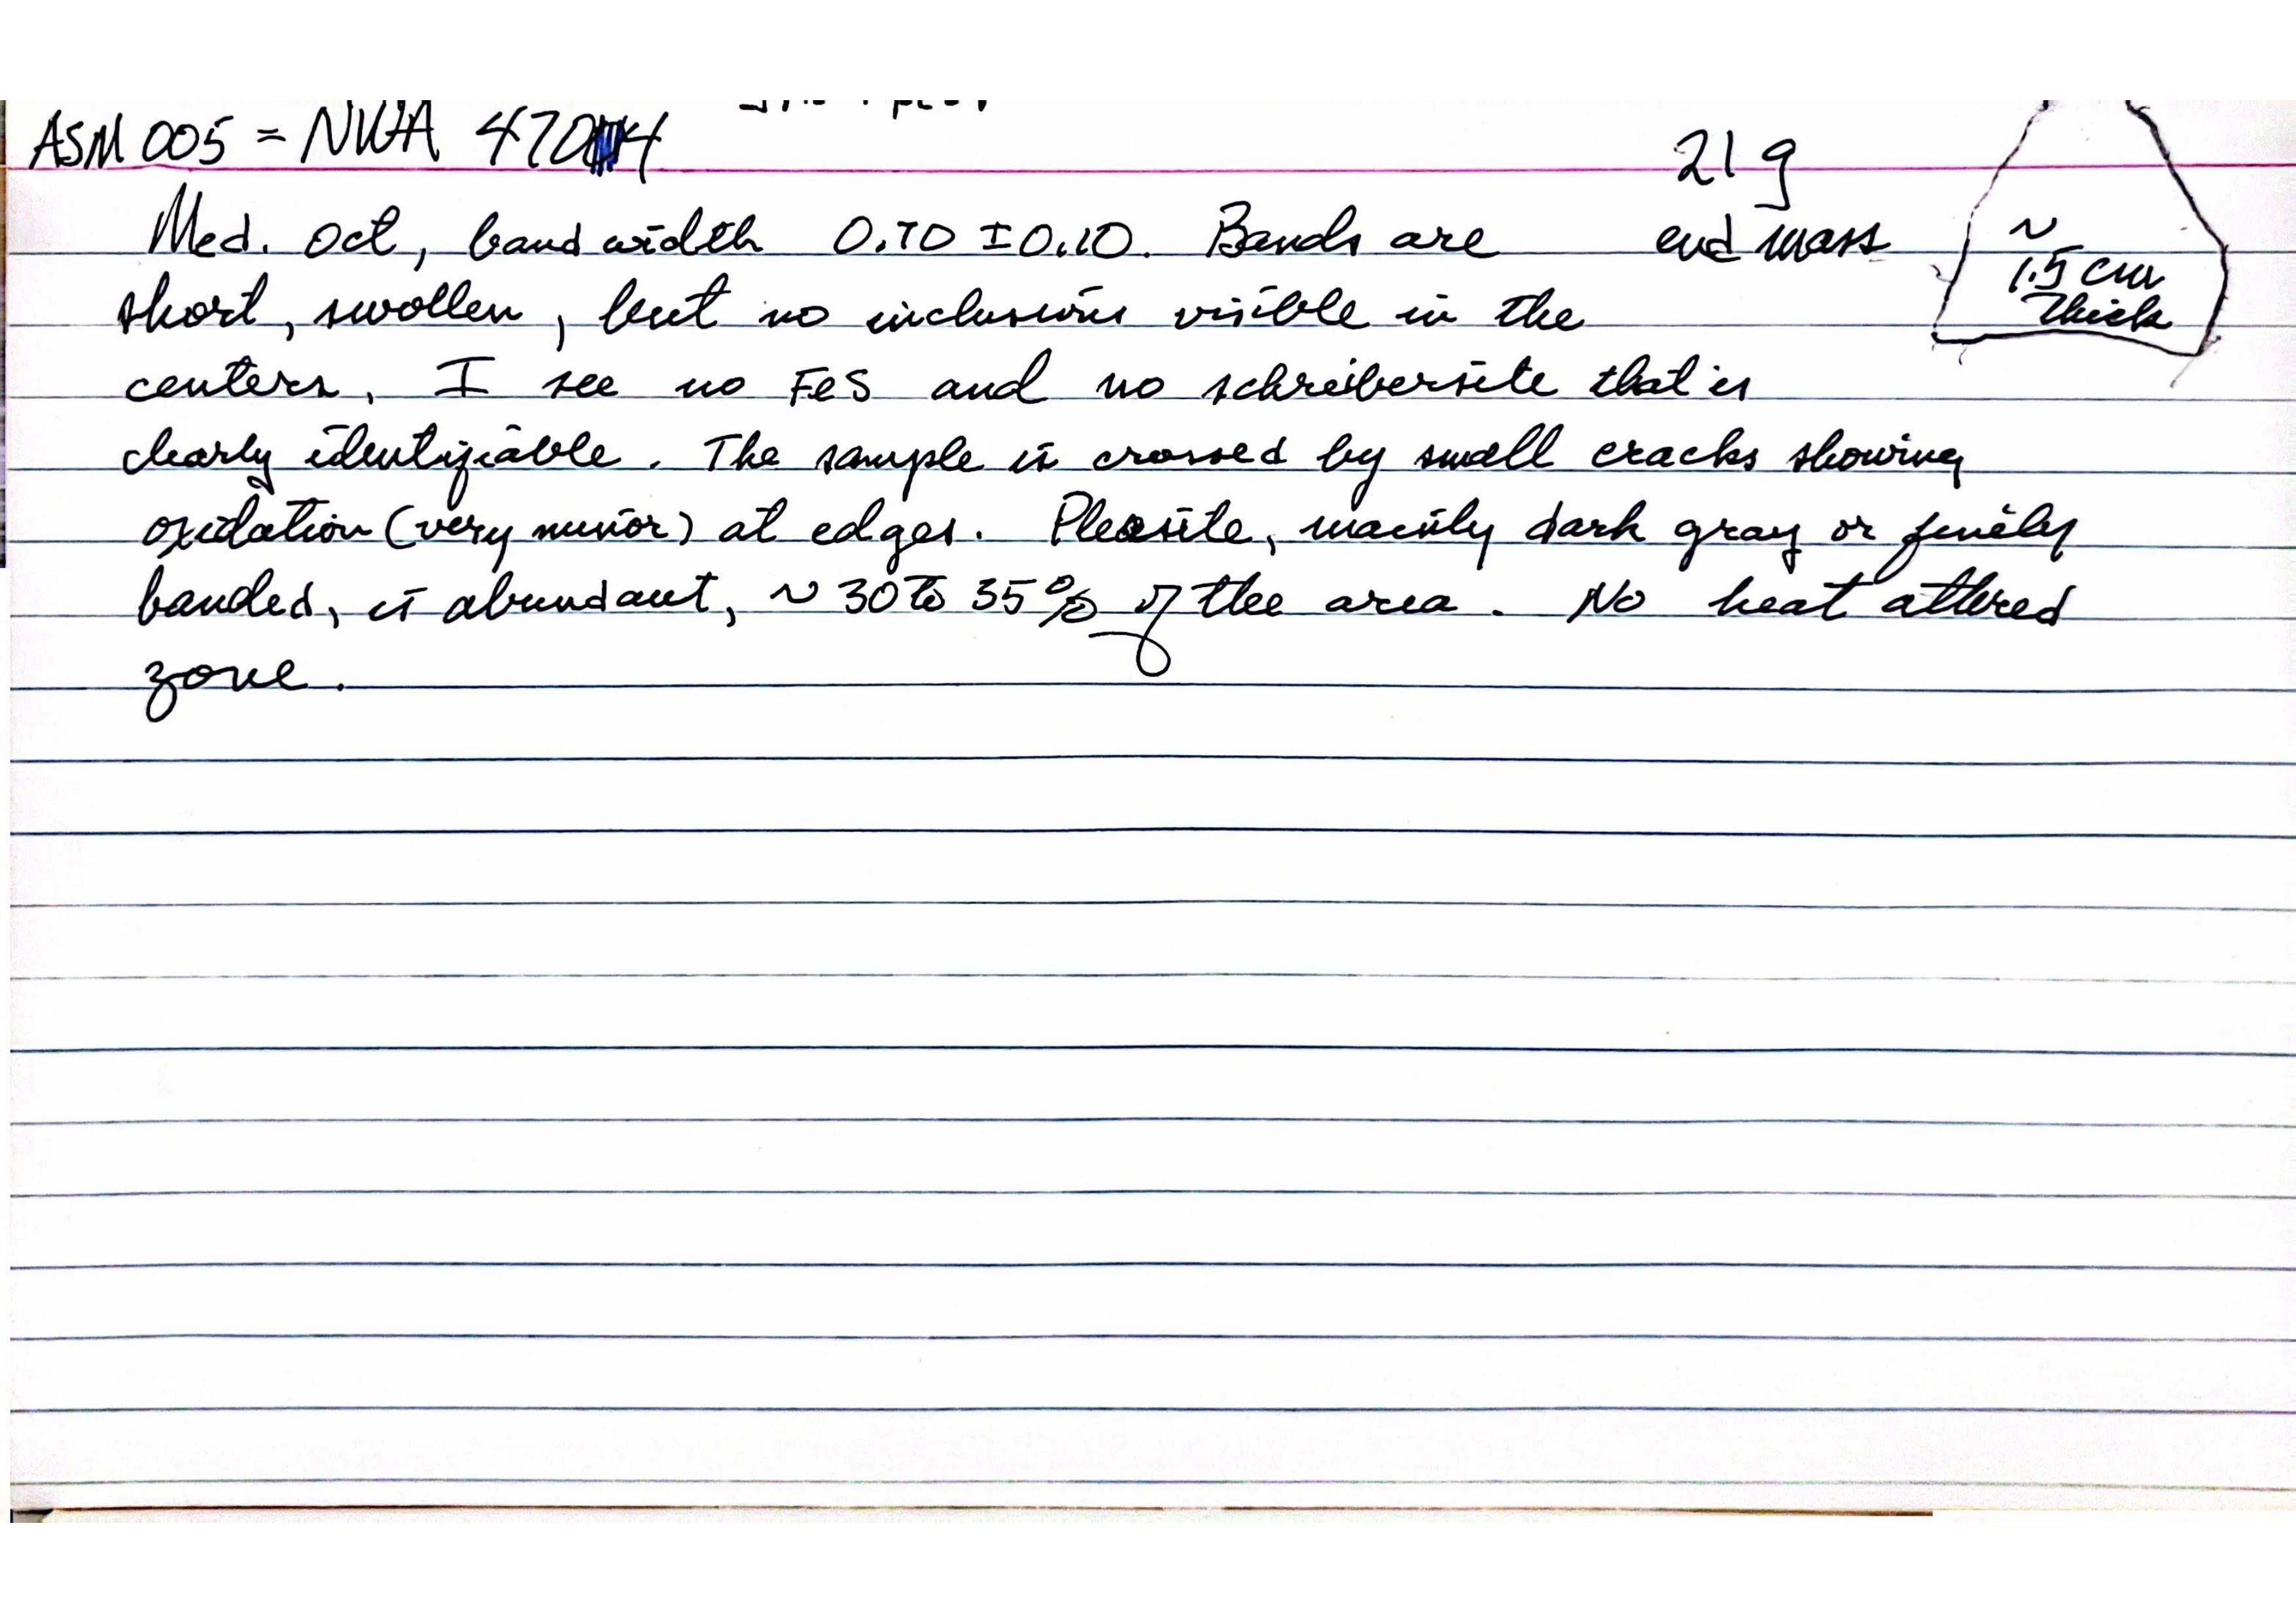 ASM 005 = NWA 4704
21 g
Med. Oct, band width 0.70 ± 0.10. Bands are
end mass
short, swollen, but no inclusions visible in the
centers. I see no FeS and no schreibersite that is
clearly identifiable. The sample is crossed by small cracks showing
oxidation (very minor) at edges. Plessite, mainly dark gray or finely
banded, is abundant, ~ 30 to 35% of the area. No heat altered
zone.
~
1.5 cm
Thick